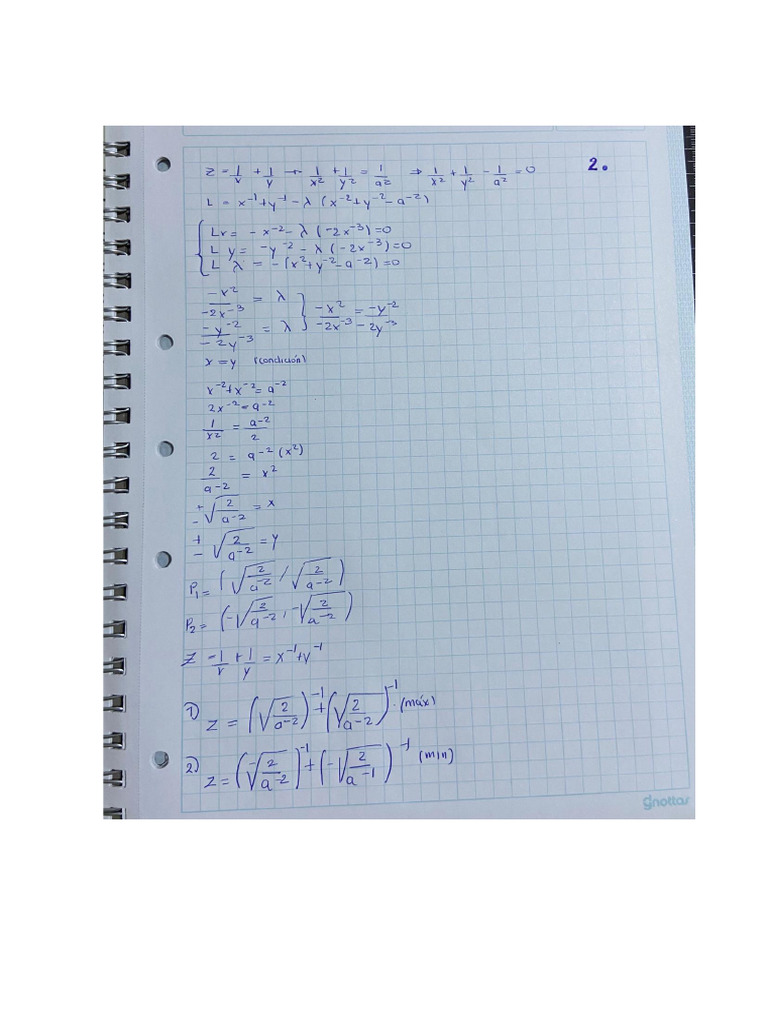 2.
Z = 1/x + 1/y → 1/x² + 1/y² = 1/a² ⇒ 1/x² + 1/y² - 1/a² = 0
L = x⁻¹+y⁻¹ - λ (x⁻²+y⁻² - a⁻²)
Lx = - x⁻² - λ (-2x⁻³) = 0
L y = -y⁻² - λ (-2x⁻³) = 0
L λ = - (x²+y⁻² - a⁻²) = 0
-x²/-2x⁻³ = λ
-y⁻²/-2y⁻³ = λ } -x²/-2x⁻³ = -y⁻²/-2y⁻³
x = y (condición)
x⁻²+x⁻² = a⁻²
2x⁻² = a⁻²
1/x² = a⁻²/2
2 = a⁻² (x²)
2/a⁻² = x²
±√(2/a⁻²) = x
±√(2/a⁻²) = y
P₁ = (√(2/a⁻²) / √(2/a⁻²))
P₂ = (-√(2/a⁻²), -√(2/a⁻²))
Z = 1/x + 1/y = x⁻¹+y⁻¹
1) Z = (√(2/a⁻²))⁻¹ + (√(2/a⁻²))⁻¹ (máx)
2) Z = (-√(2/a⁻²))⁻¹ + (-√(2/a⁻¹))⁻¹ (min)
gnottas